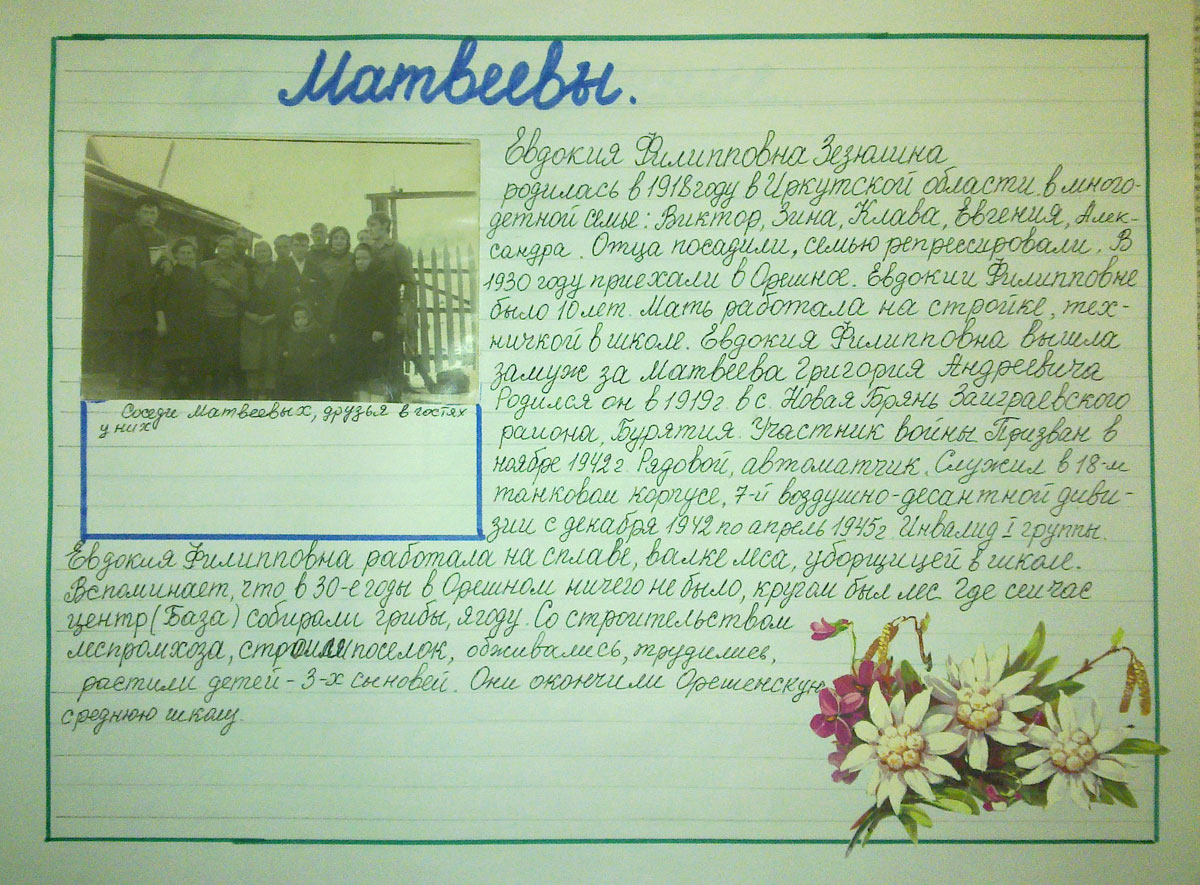 Матвеевы.
Евдокия Филипповна Зезюлина
родилась в 1918 году в Иркутской области в много-
детной семье: Виктор, Зина, Клава, Евгения, Алек-
сандра. Отца посадили, семью репрессировали. В
1930 году приехали в Орешное. Евдокии Филипповне
было 10 лет. Мать работала на стройке, тех-
ничкой в школе. Евдокия Филипповна вышла
замуж за Матвеева Григория Андреевича
Родился он в 1919г. в с. Новая Брянь Заиграевского
района, Бурятия. Участник войны Призван в
ноябре 1942 г. Рядовой, автоматчик. Служил в 18-м
танковом корпусе, 7-й воздушно-десантной диви-
зии с декабря 1942 по апрель 1945г. Инвалид I группы.
Соседи Матвеевых, друзья в гостях
у них
Евдокия Филипповна работала на сплаве, валке леса, уборщицей в школе.
Вспоминает, что в 30-е годы в Орешном ничего не было, кругом был лес Где сейчас
центр (База) собирали грибы, ягоду. Со строительством
леспромхоза, строили поселок, обживались, трудились,
растили детей - 3-х сыновей. Они окончили Орешенскую
среднюю школу.